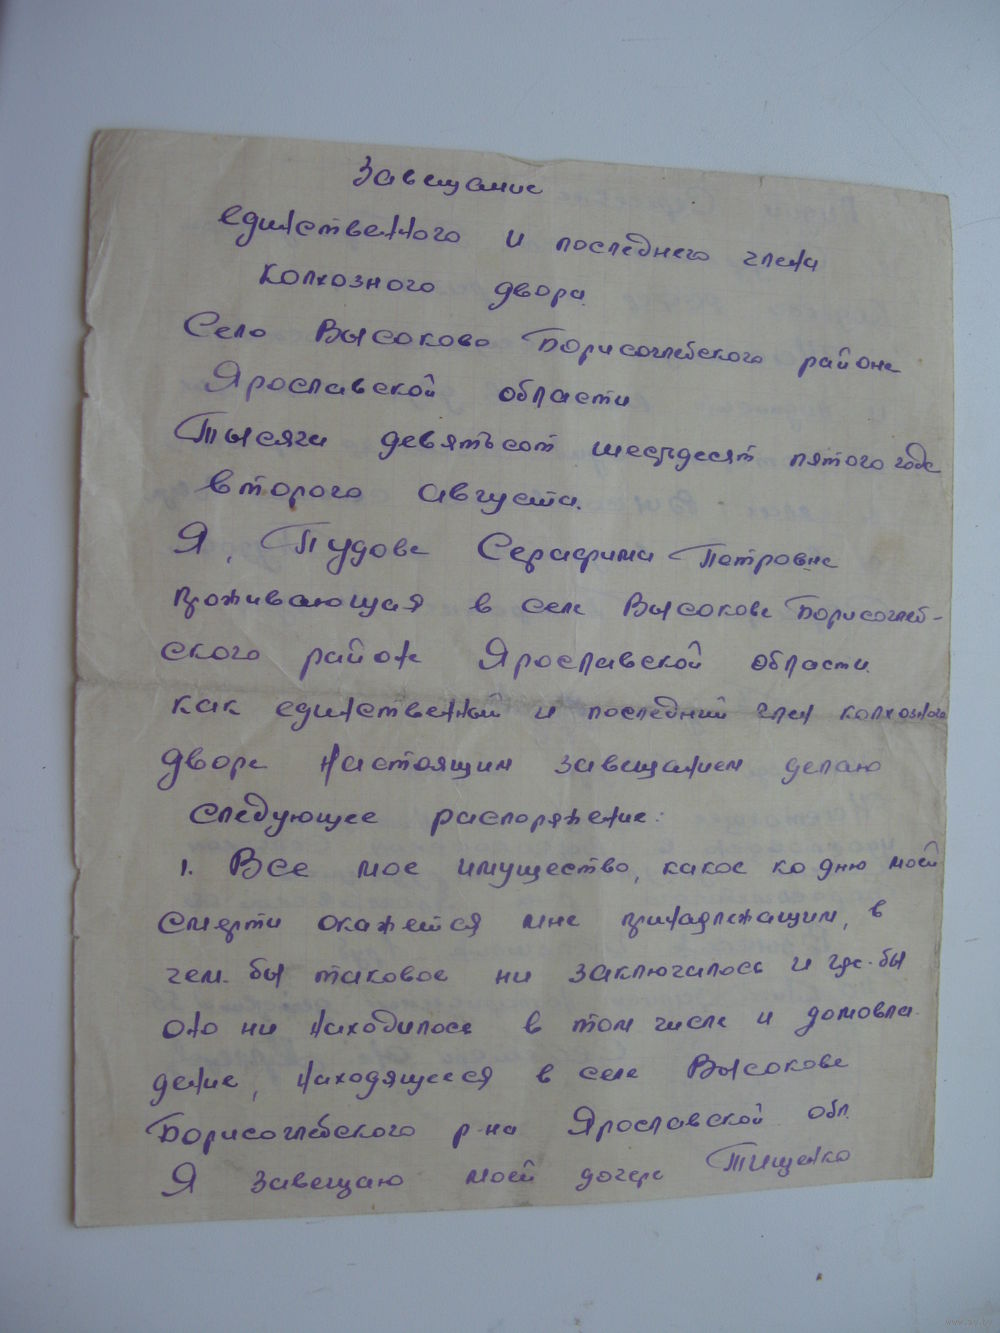 Завещание
единственного и последнего члена
колхозного двора.
Село Высоково Борисоглебского района
Ярославской области
Тысяча девятьсот шестьдесят пятого года
второго августа.
Я, Тудова Серафима Петровна
проживающая в селе Высокове Борисоглеб-
ского района Ярославской области.
как единственный и последний член колхозного
двора настоящим завещанием делаю
следующее распоряжение:
1. Все мое имущество, какое ко дню моей
смерти окажется мне принадлежащим, в
чем-бы таковое ни заключалось и где-бы
оно ни находилось в том числе и домовла-
дение, находящееся в селе Высокове
Борисоглебского р-на Ярославской обл.
Я завещаю моей дочери Тищенко